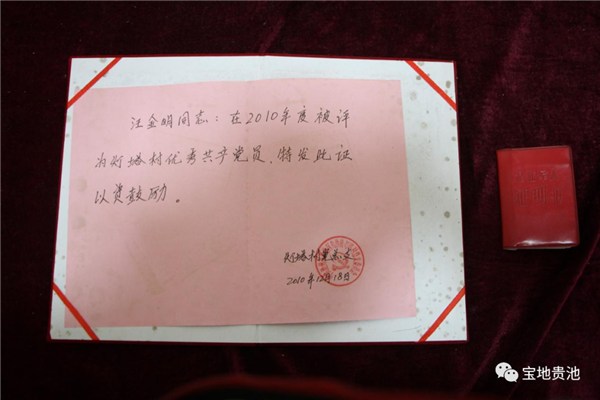 汪金明同志：在2010年度被评
为灯塔村优秀共产党员，特发此证
以资鼓励。
灯塔村党总支
2010年12月18日
宝地贵池